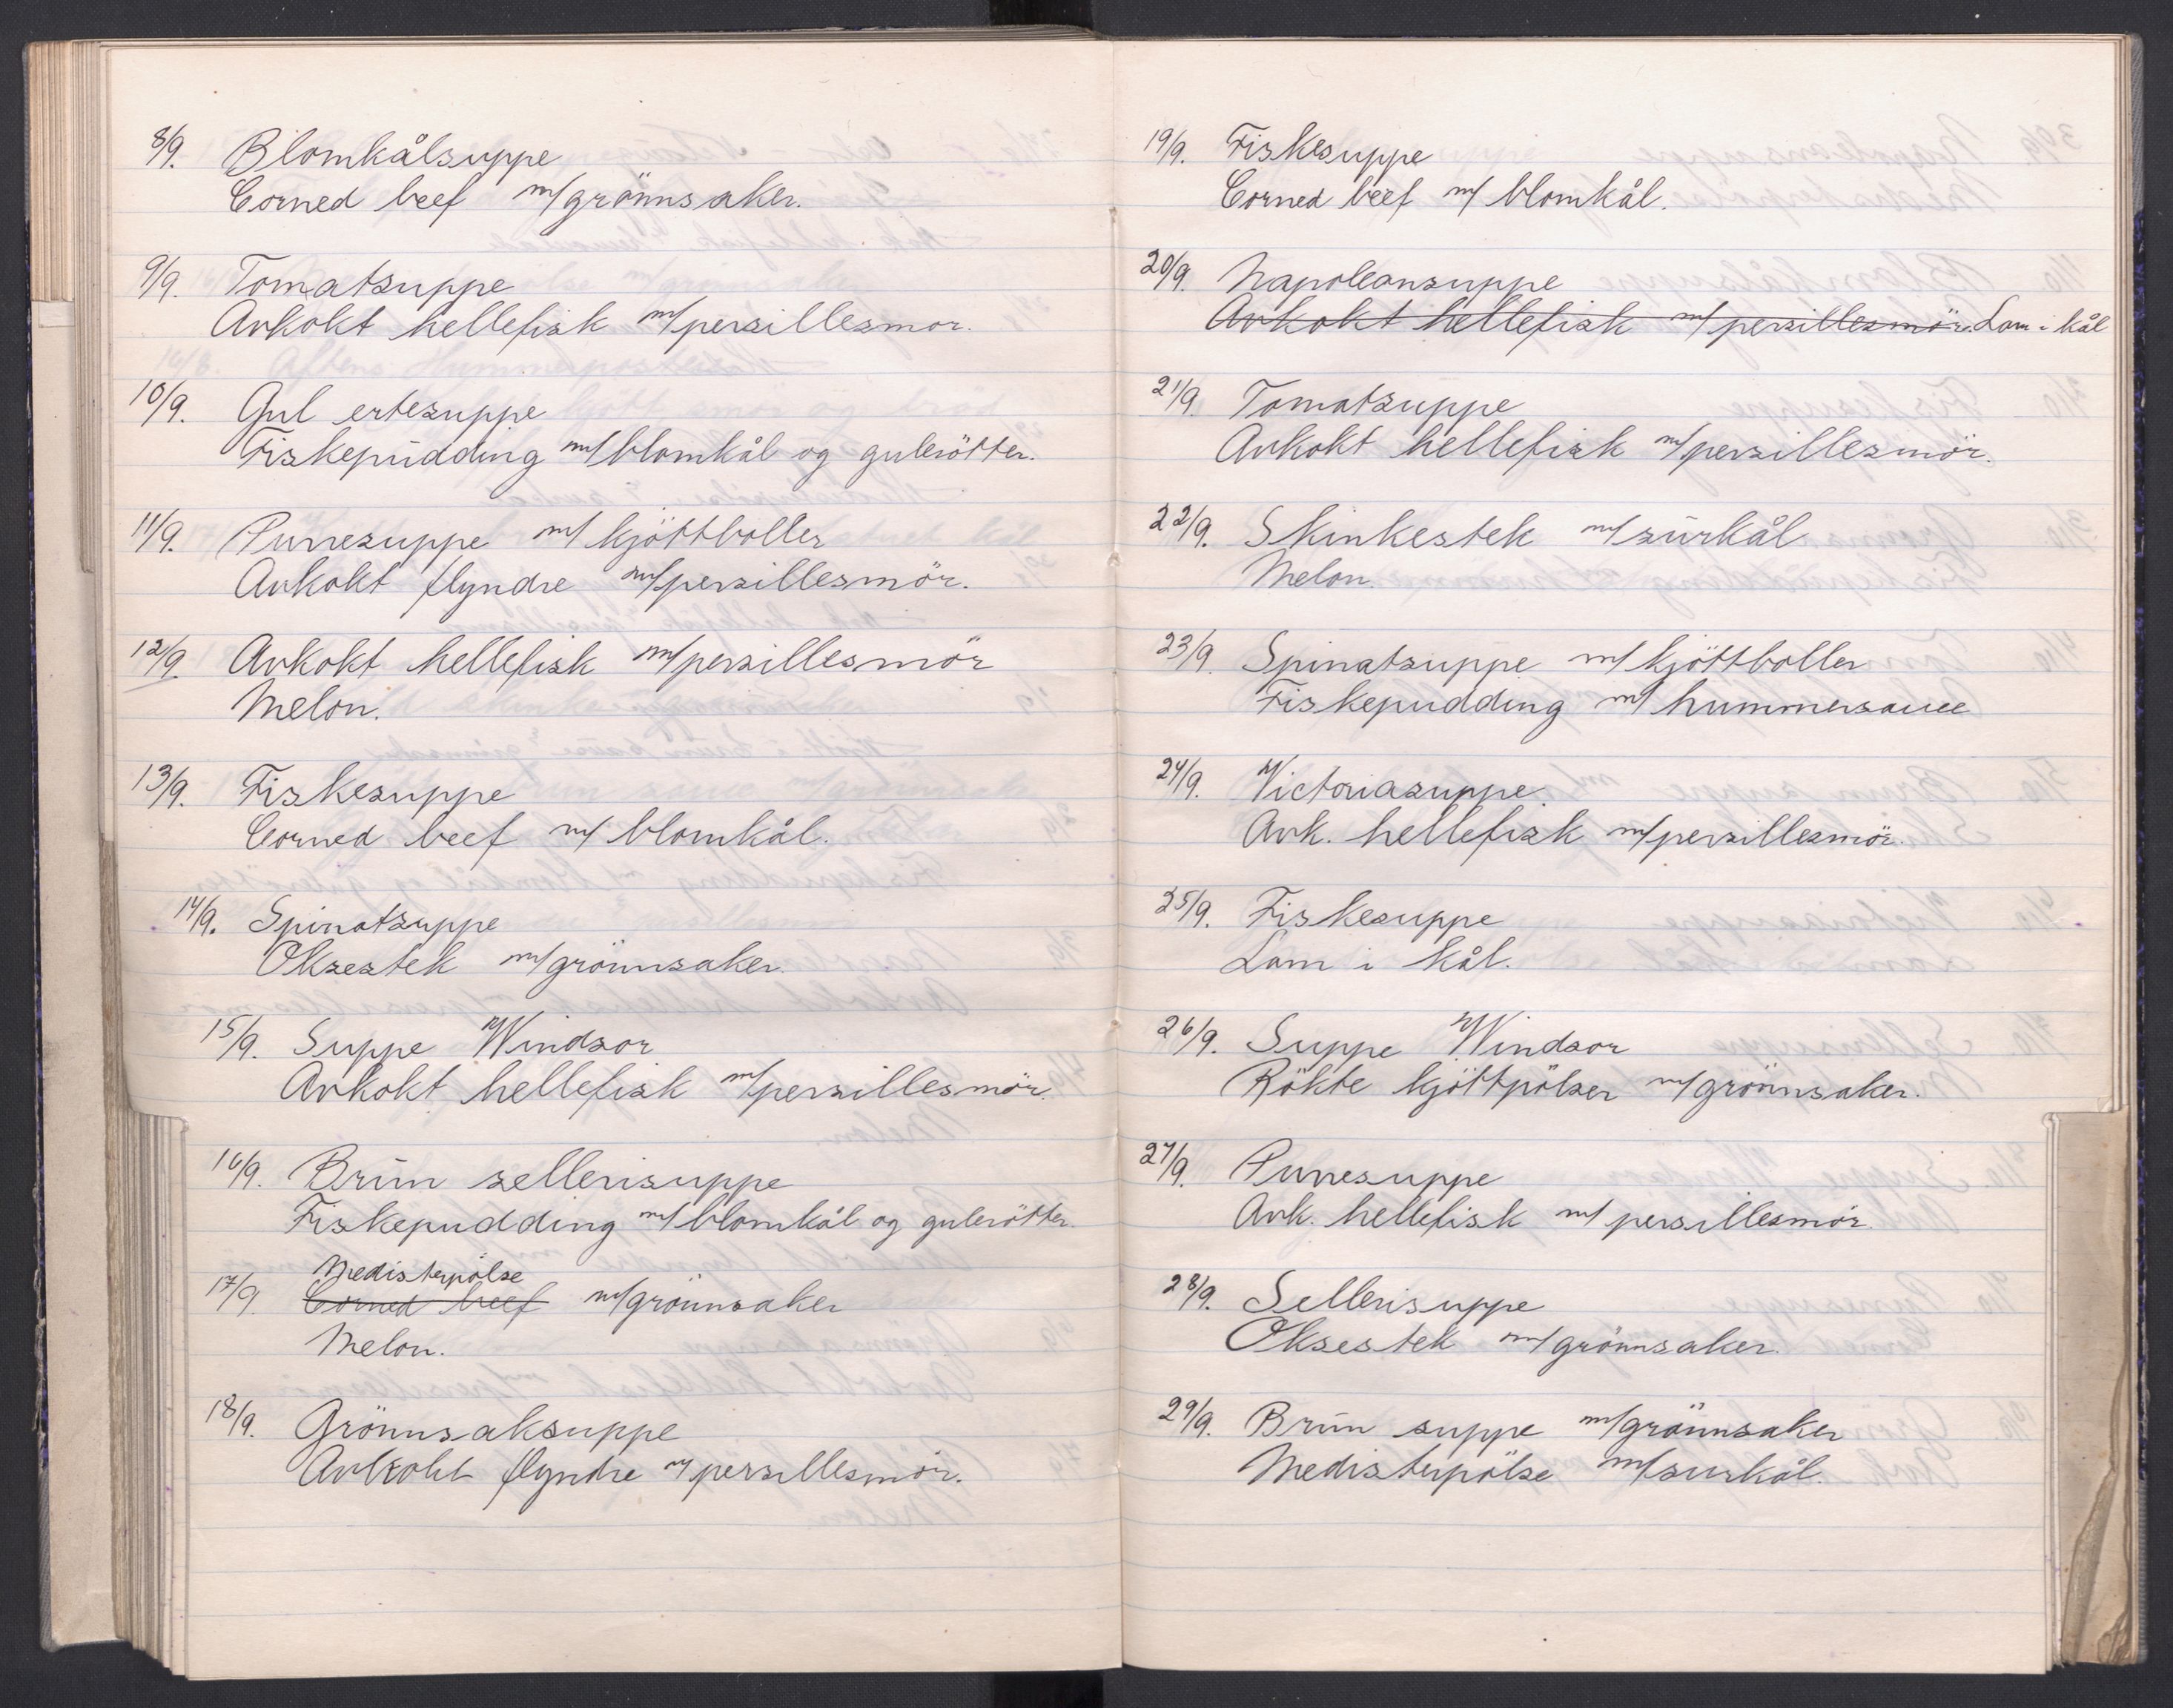 8/9. Blomkålsuppe
Corned beef m/grönnsaker.
9/9. Tomatsuppe
Avkokt hellefisk m/persillesmör.
10/9. Gul ertesuppe
Fiskepudding m/blomkål og gulerötter.
11/9. Purresuppe m/kjöttboller
Avkokt flyndre m/persillesmör.
12/9. Avkokt hellefisk m/persillesmör
Melon.
13/9. Fiskesuppe
Corned beef m/blomkål.
14/9. Spinatsuppe
Oksestek m/grönnsaker.
15/9. Suppe Windsor
Avkokt hellefisk m/persillesmör.
16/9. Brun sellerisuppe
Fiskepudding m/blomkål og gulerötter.
Medisterpölse
17/9. Corned beef m/grönnsaker
Melon.
18/9. Grönnsaksuppe
Avkokt flyndre m/persillesmör.
19/9. Fiskesuppe
Corned beef m/blomkål.
20/9. Napoleonsuppe
Avkokt hellefisk m/persillesmör. Lam i kål
21/9. Tomatsuppe
Avkokt hellefisk m/persillesmör.
22/9. Skinkestek m/surkål
Melon.
23/9. Spinatsuppe m/kjöttboller
Fiskepudding m/hummersauce
24/9. Victoriasuppe.
Avk. hellefisk m/persillesmör.
25/9. Fiskesuppe
Lam i kål.
26/9. Suppe Windsor
Rökte kjöttpölser m/grönnsaker.
27/9. Purresuppe
Avk. hellefisk m/persillesmör.
28/9. Sellerisuppe
Oksestek m/grönnsaker.
29/9. Brun suppe m/grönnsaker
Medisterpölse m/surkål.